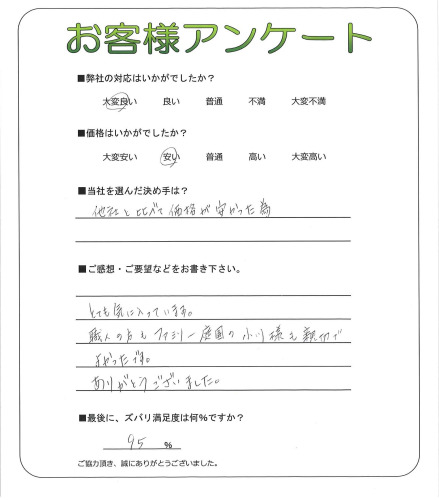 お客様アンケート
■弊社の対応はいかがでしたか?
大変良い 良い 普通 不満 大変不満
■価格はいかがでしたか?
大変安い 安い 普通 高い 大変高い
■当社を選んだ決め手は?
他社と比べて価格が安かった為
■ご感想・ご要望などをお書き下さい。
とても気に入っています。
職人の方もファミリー庭園の小川様も親切で
よかったです。
ありがとうございました。
■最後に、ズバリ満足度は何%ですか?
95 %
ご協力頂き、誠にありがとうございました。